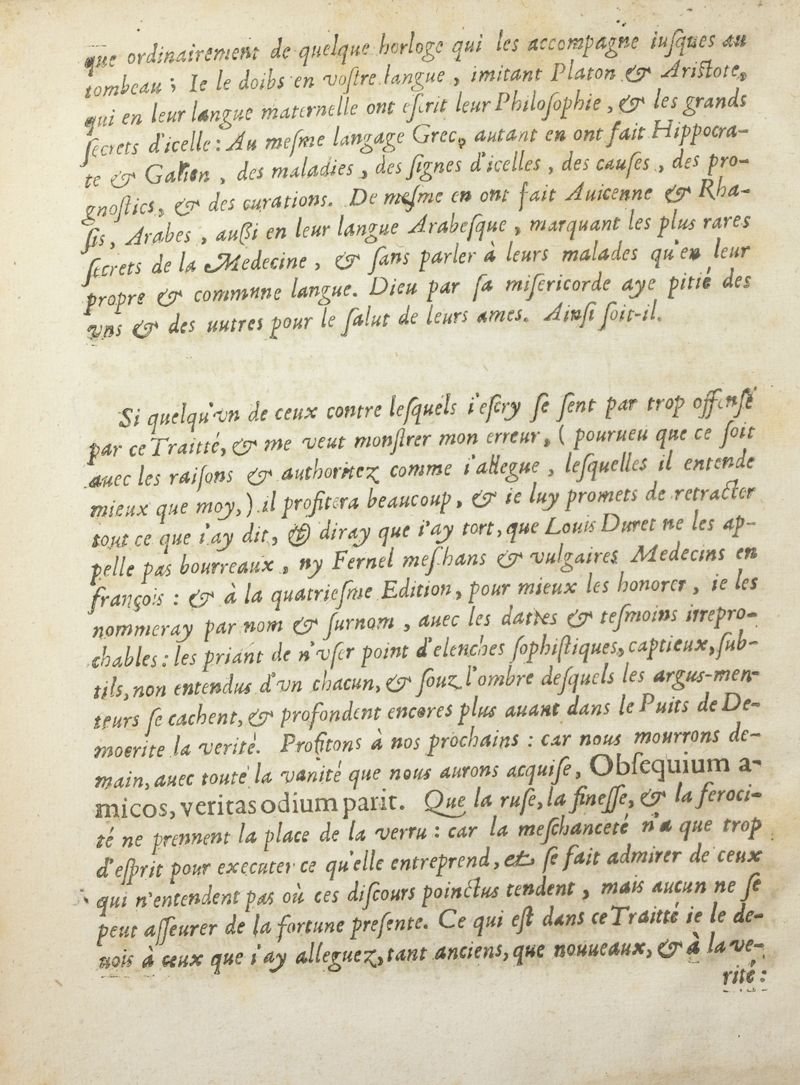 que ordinairement de quelque horloge qui les accompagne iuſques au
tombeau ; Ie le doibs en voſtre langue , imitant Platon & Ariſtote,
qui en leur langue maternelle ont eſcrit leur Philoſophie , & les grands
ſecrets d'icelle : Au meſme langage Grec, autant en ont fait Hippocra-
te & Galien , des maladies , des ſignes d'icelles , des cauſes , des pro-
gnoſtics, & des curations. De meſme en ont fait Auicenne & Rha-
ſis, Arabes , auſsi en leur langue Arabeſque , marquant les plus rares
ſecrets de la Medecine , & ſans parler à leurs malades qu'en leur
propre & commune langue. Dieu par ſa miſericorde aye pitié des
vns & des uutres pour le ſalut de leurs ames. Ainſi ſoit-il.
Si quelqu'vn de ceux contre leſquels i'eſcry ſe ſent par trop offenſé
par ce Traitté, & me veut monſtrer mon erreur, ( pourueu que ce ſoit
auec les raiſons & authoritez comme i'allegue , leſquelles il entende
mieux que moy, ) il profitera beaucoup, & ie luy promets de retracter
tout ce que i'ay dit, & diray que i'ay tort, que Louis Duret ne les ap-
pelle pas bourreaux , ny Fernel meſhans & vulgaires Medecins en
françois : & à la quatrieſme Edition, pour mieux les honorer , ie les
nommeray par nom & ſurnom , auec les dattes & teſmoins irrepro-
chables : les priant de n'vſer point d'elenches ſophiſtiques, captieux, ſub-
tils, non entendus d'vn chacun, & ſouz l'ombre deſquels les argus-men-
teurs ſe cachent, & profondent encores plus auant dans le Puits de De-
mocrite la verité. Profitons à nos prochains : car nous mourrons de-
main, auec toute la vanité que nous aurons acquiſe, Obſequium a-
micos, veritas odium parit. Que la ruſe, la fineſſe, & la feroci-
té ne prennent la place de la verru : car la meſchanceté n'a que trop
d'eſprit pour executer ce qu'elle entreprend, et ſe fait admirer de ceux
qui n'entendent pas où ces diſcours poinctus tendent , mais aucun ne ſe
peut aſſeurer de la fortune preſente. Ce qui eſt dans ce Traitté ie le de-
uois à ceux que i'ay alleguez, tant anciens, que nouueaux, & à la ve-
rité :